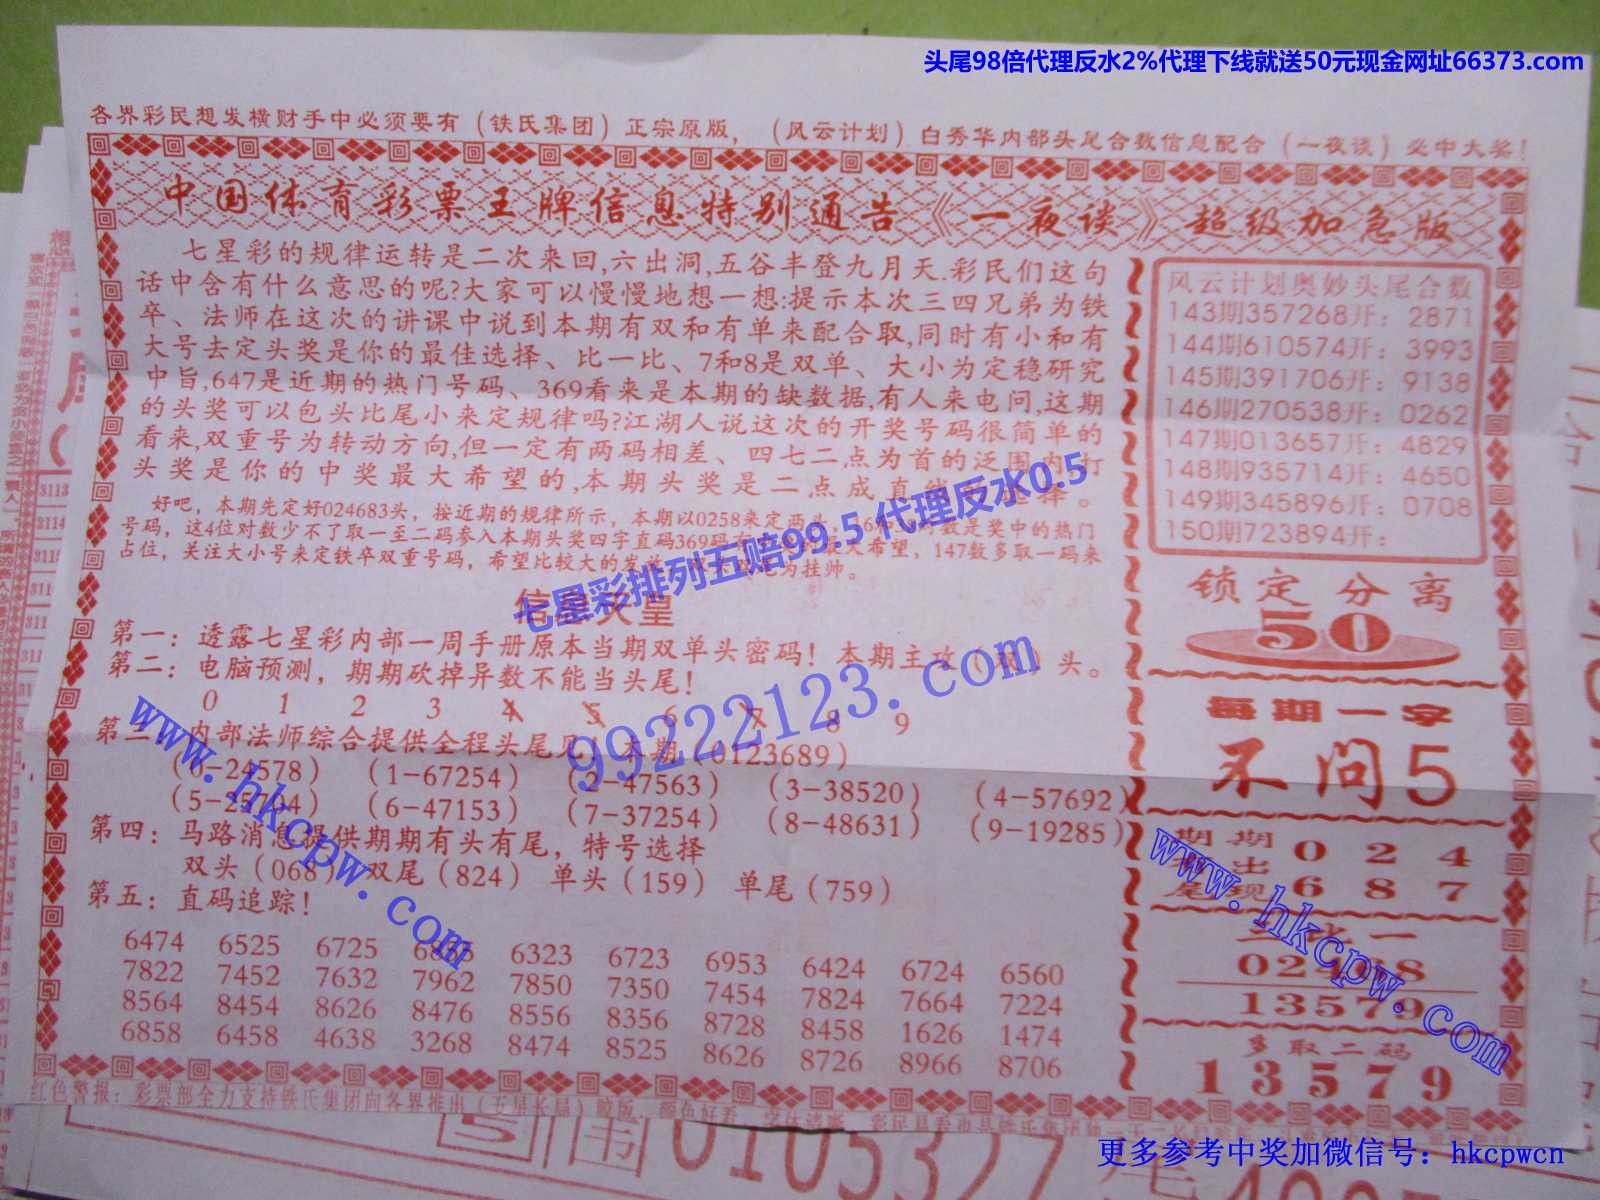 头尾98倍代理反水2%代理下线就送50元现金网址66373.com
各界彩民想发横财手中必须要有（铁氏集团）正宗原版，（风云计划）白秀华内部头尾合数信息配合（一夜谈）必中大奖！
中国体育彩票王牌信息特别通告《一夜谈》超级加急版
七星彩的规律运转是二次来回,六出洞,五谷丰登九月天.彩民们这句
话中含有什么意思的呢?大家可以慢慢地想一想:提示本次三四兄弟为铁
卒、法师在这次的讲课中说到本期有双和有单来配合取,同时有小和有
大号去定头奖是你的最佳选择、比一比、7和8是双单、大小为定稳研究
中旨,647是近期的热门号码、369看来是本期的缺数据,有人来电问,这期
的头奖可以包头比尾小来定规律吗?江湖人说这次的开奖号码很简单的
看来,双重号为转动方向,但一定有两码相差、四七二点为首的泛围内打
头奖是你的中奖最大希望的,本期头奖是二点成直线
好吧，本期先定好024683头，按近期的规律所示，本期以0258来定两头，
号码，这4位对数少不了取一至二码参入本期头奖四字直码369码 数是奖中的热门
占位，关注大小号来定铁卒双重号码，希望比较大的发 最大希望，147数多取一码来
为挂帅。
七星彩排列五赔99.5 代理反水0.5
信息天皇
第一：透露七星彩内部一周手册原本当期双单头密码！本期主攻（双）头。
第二：电脑预测，期期砍掉异数不能当头尾！
0 1 2 3 4 5 6 7 8 9
第三：内部法师综合提供全程头尾见！本期（0123689）
（0-24578）（1-67254）（2-47563）（3-38520）（4-57692）
（5-25794）（6-47153）（7-37254）（8-48631）（9-19285）
第四：马路消息提供期期有头有尾，特号选择
双头（068）双尾（824）单头（159）单尾（759）
第五：直码追踪！
6474 6525 6725 6323 6723 6953 6424 6724 6560
7822 7452 7632 7962 7850 7350 7454 7824 7664 7224
8564 8454 8626 8476 8556 8356 8728 8458 1626 1474
6858 6458 4638 3268 8474 8525 8626 8726 8966 8706
风云计划奥妙头尾合数
143期357268开：2871
144期610574开：3993
145期391706开：9138
146期270538开：0262
147期013657开：4829
148期935714开：4650
149期345896开：0708
150期723894开：
锁定分离
50
每期一字
不问5
期期 0 2 4
出
尾现 6 8 7
二比一
02468
13579
多取二码
13579
99222123.com
www.hkcpw.com
www.hkcpw.com
红色警报：彩票部全力支持铁氏集团向各界推出（五星长局）
0105327
更多参考中奖加微信号：hkcpwcn